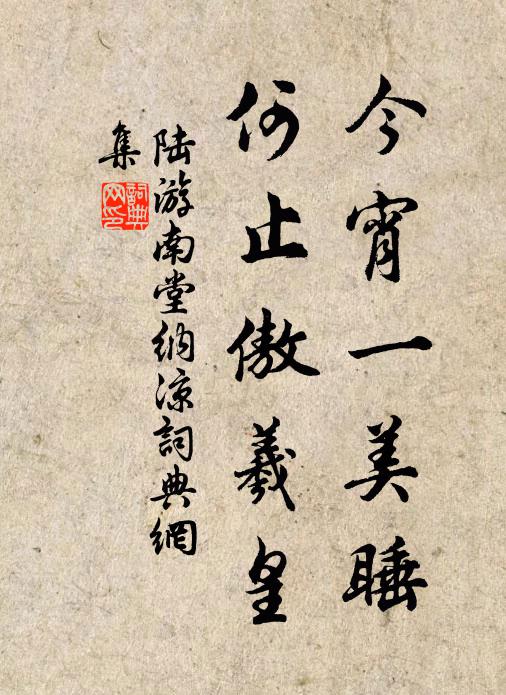 今宵一美睡
何止傲羲皇
陆游南堂纳凉詞典網
集
詞典
网印